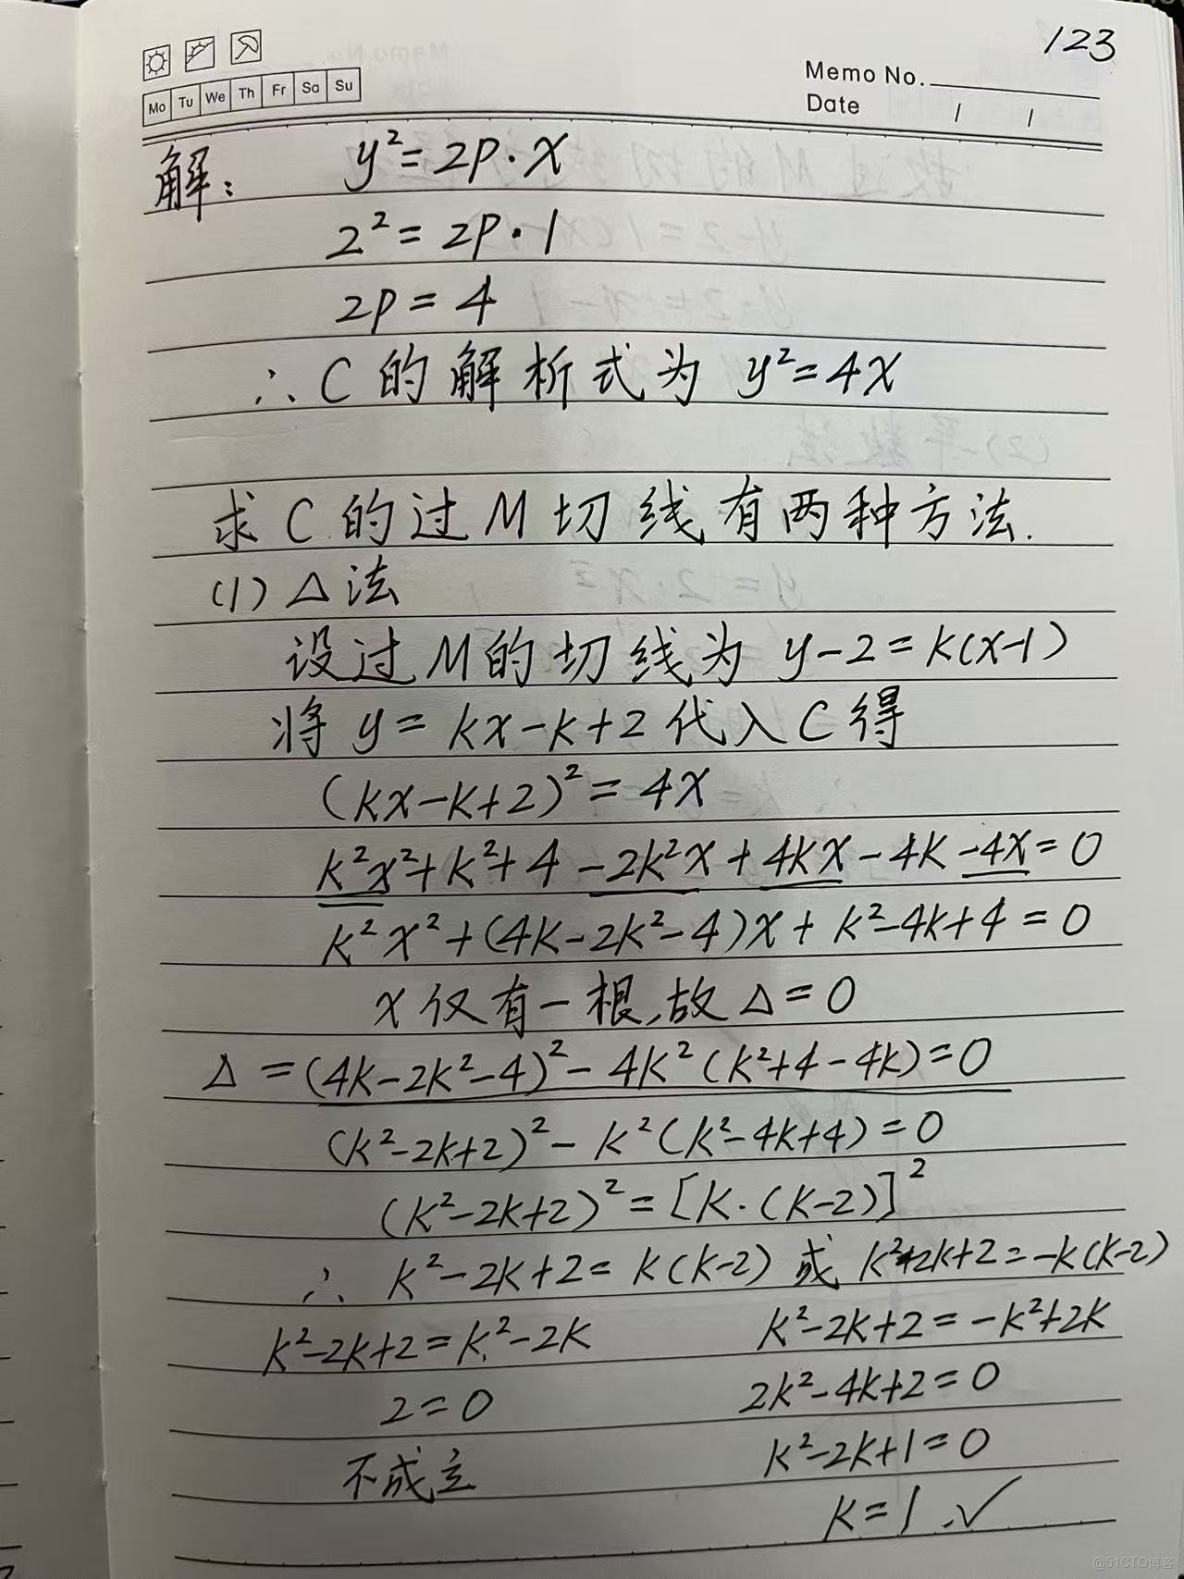 123
Memo No.
Mo Tu We Th Fr Sa Su
Date / /
解: y²=2p·x
2²=2p·1
2p=4
∴C的解析式为 y²=4x
求C的过M切线有两种方法.
(1)△法
设过M的切线为 y-2=k(x-1)
将 y=kx-k+2代入C得
(kx-k+2)²=4x
k²x²+k²+4-2k²x+4kx-4k-4x=0
k²x²+(4k-2k²-4)x+k²-4k+4=0
x仅有一根,故△=0
△=(4k-2k²-4)²-4k²(k²+4-4k)=0
(k²-2k+2)²-k²(k²-4k+4)=0
(k²-2k+2)²=[k·(k-2)]²
∴ k²-2k+2=k(k-2) 或 k²-2k+2=-k(k-2)
k²-2k+2=k²-2k k²-2k+2=-k²+2k
2=0 2k²-4k+2=0
不成立 k²-2k+1=0
k=1.✓
@51CTO博客